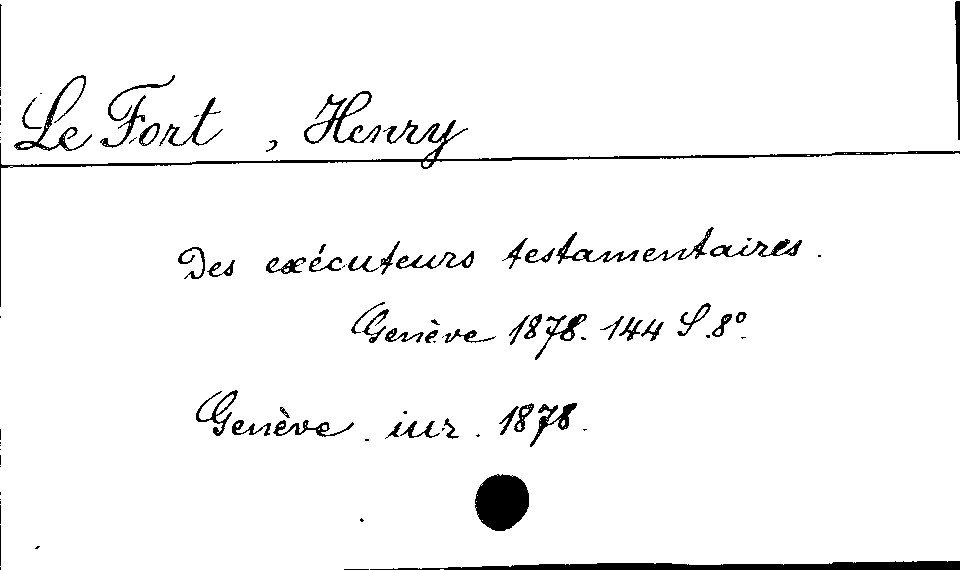 Le Fort, Henry
Des exécuteurs testamentaires.
Genève 1878. 144 S. 8°.
Genève. iur. 1878.